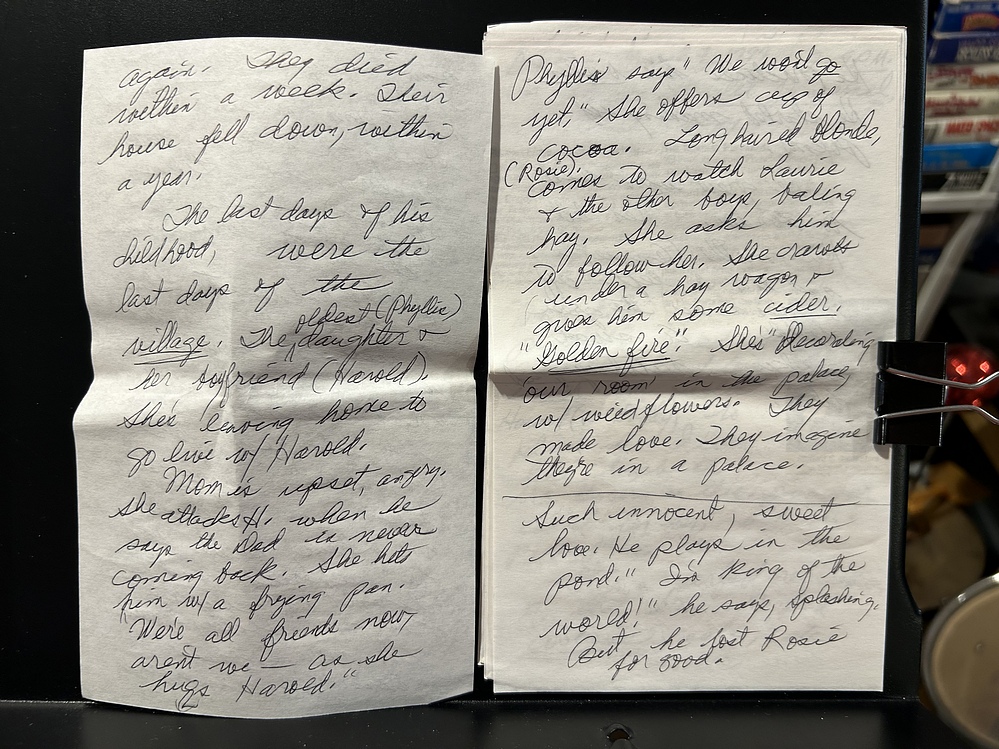 again. They died
within a week. Their
house fell down, within
a year.
The last days of his
childhood, were the
last days of the
oldest (Phyllis)
village. The daughter &
her boyfriend (Harold).
She's leaving home to
go live w/ Harold.
Mom is upset, angry.
she attacks H. when he
says the Dad is never
coming back. She hits
him w/ a frying pan.
"We're all friends now,
aren't we — as she
hugs Harold."
Phyllis says "We won't go
yet." She offers cup of
cocoa. Long haired blonde,
(Rosie).
comes to watch Laurie
& the other boys, baling
hay. She asks him
to follow her. She crawls
under a hay wagon &
gives him some cider.
"Golden fire". She's "Decorating
'our room' in the palace,
w/ weed flowers. They
made love. They imagine
they're in a palace.
Such innocent, sweet
love. He plays in the
pond. "I'm king of the
world!" he says, splashing.
But, he lost Rosie
for good.